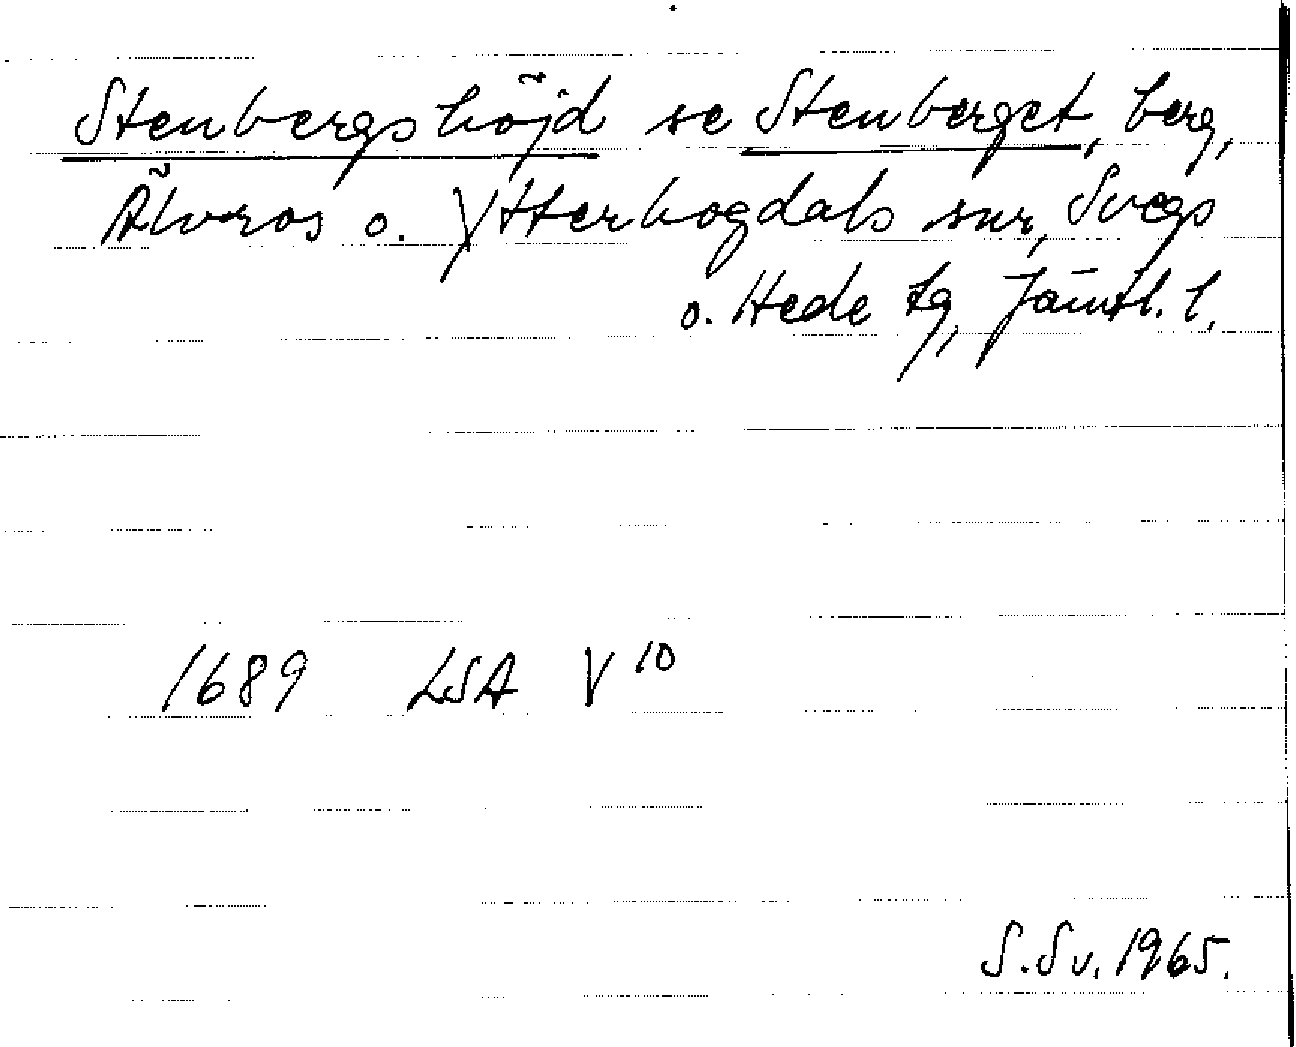 Stenbergshöjd se Stenberget, berg,
Älvros o. Ytterhogdals snr, Svegs
o. Hede tg, Jämtl. l.
1689 LSA V 10
S. Sv. 1965.